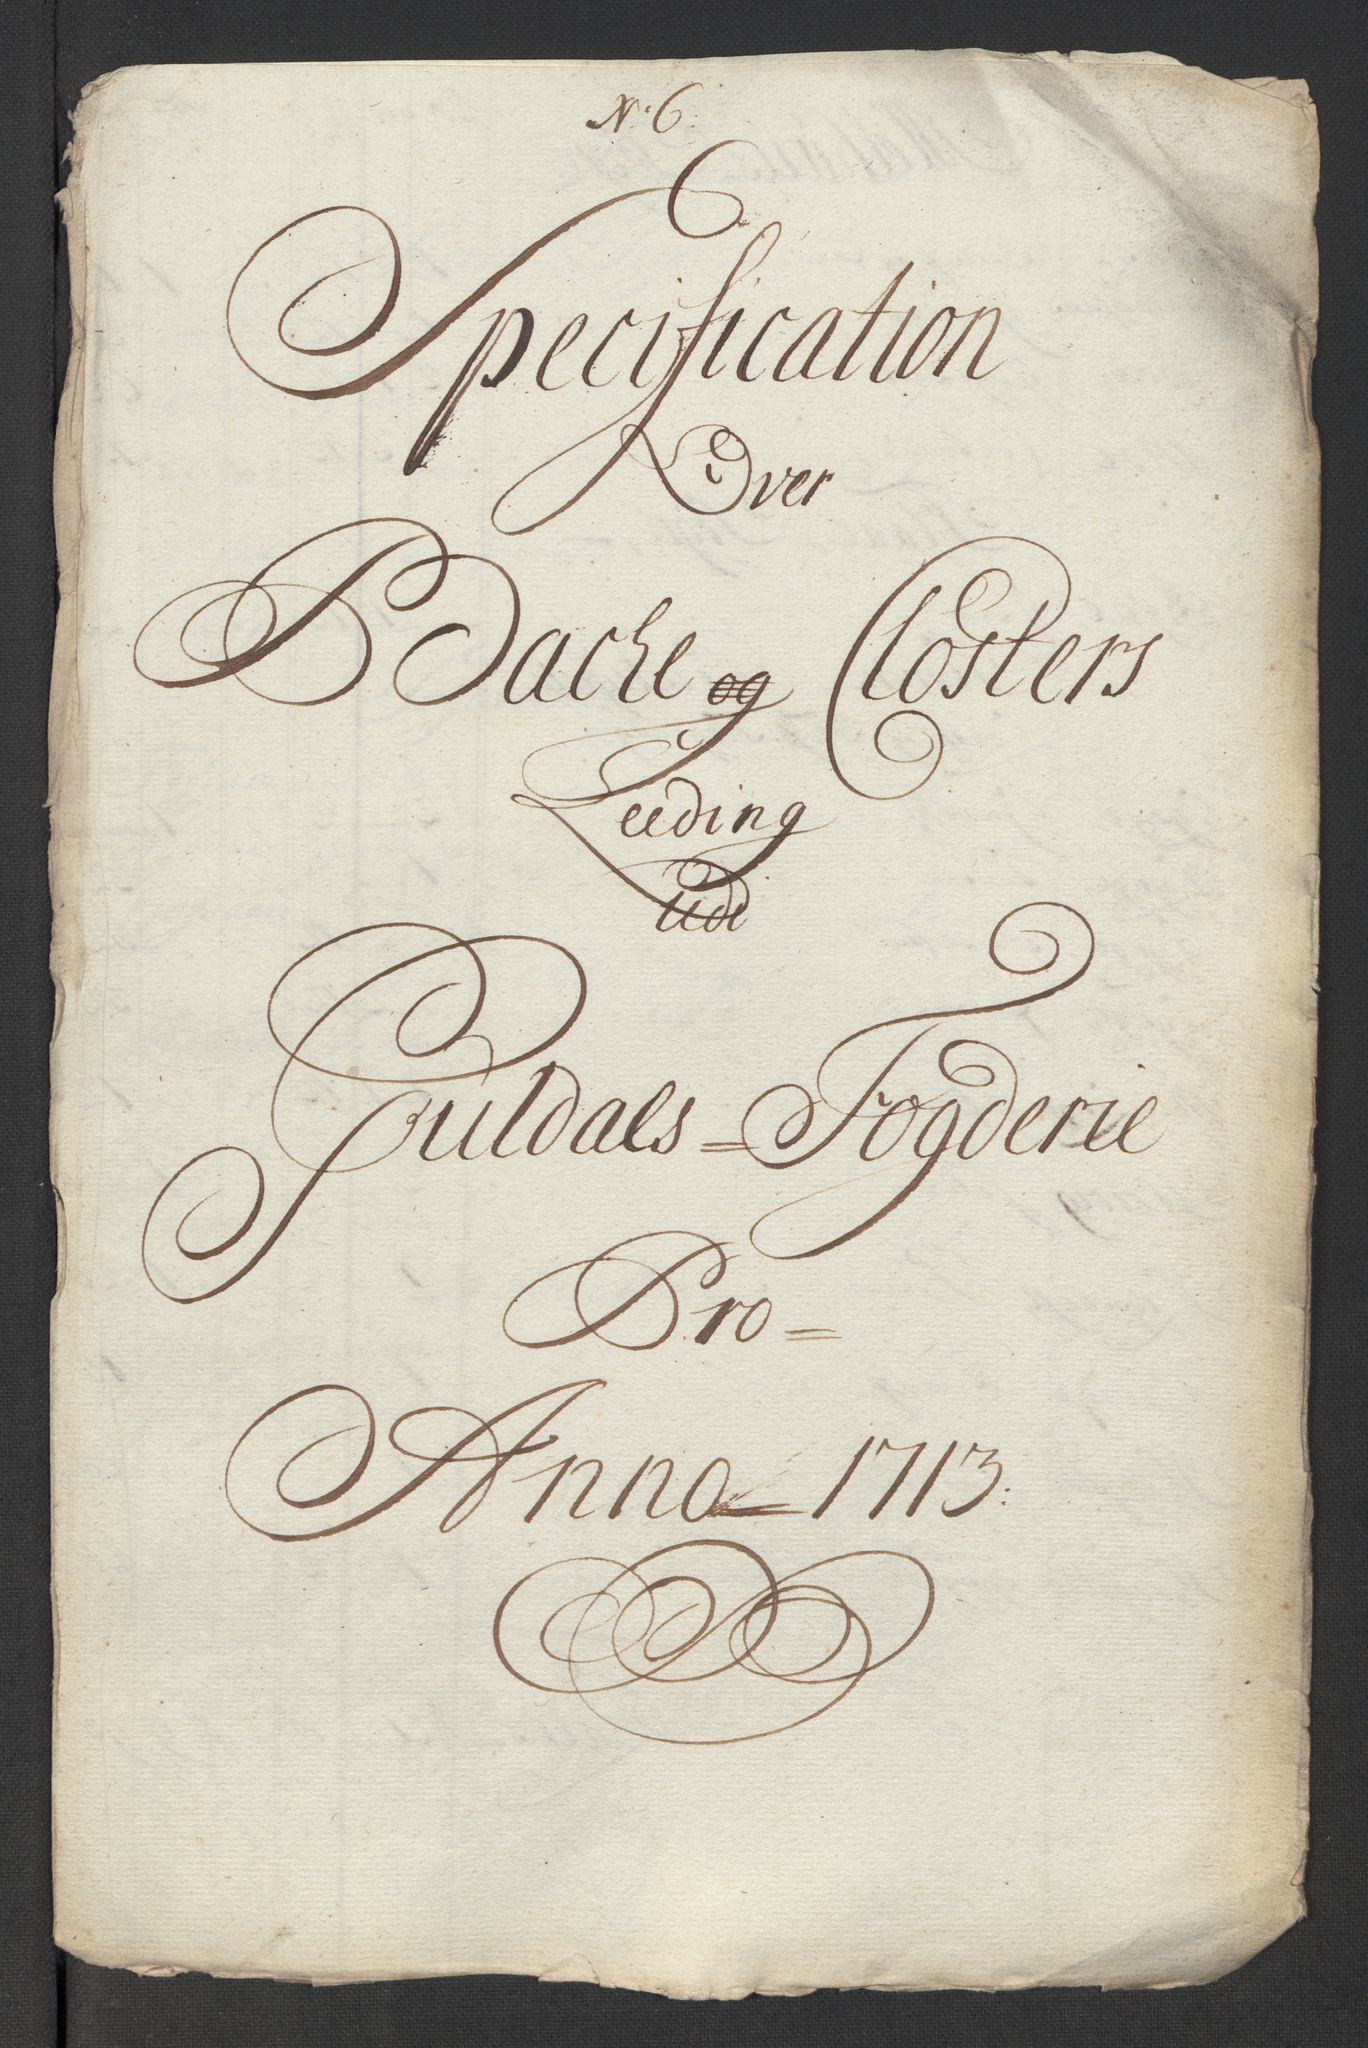 No 6.
Specification
Over
Backe og Closters
Leeding
Udi
Guldals = Fogderie
Pro =
Anno = 1713.